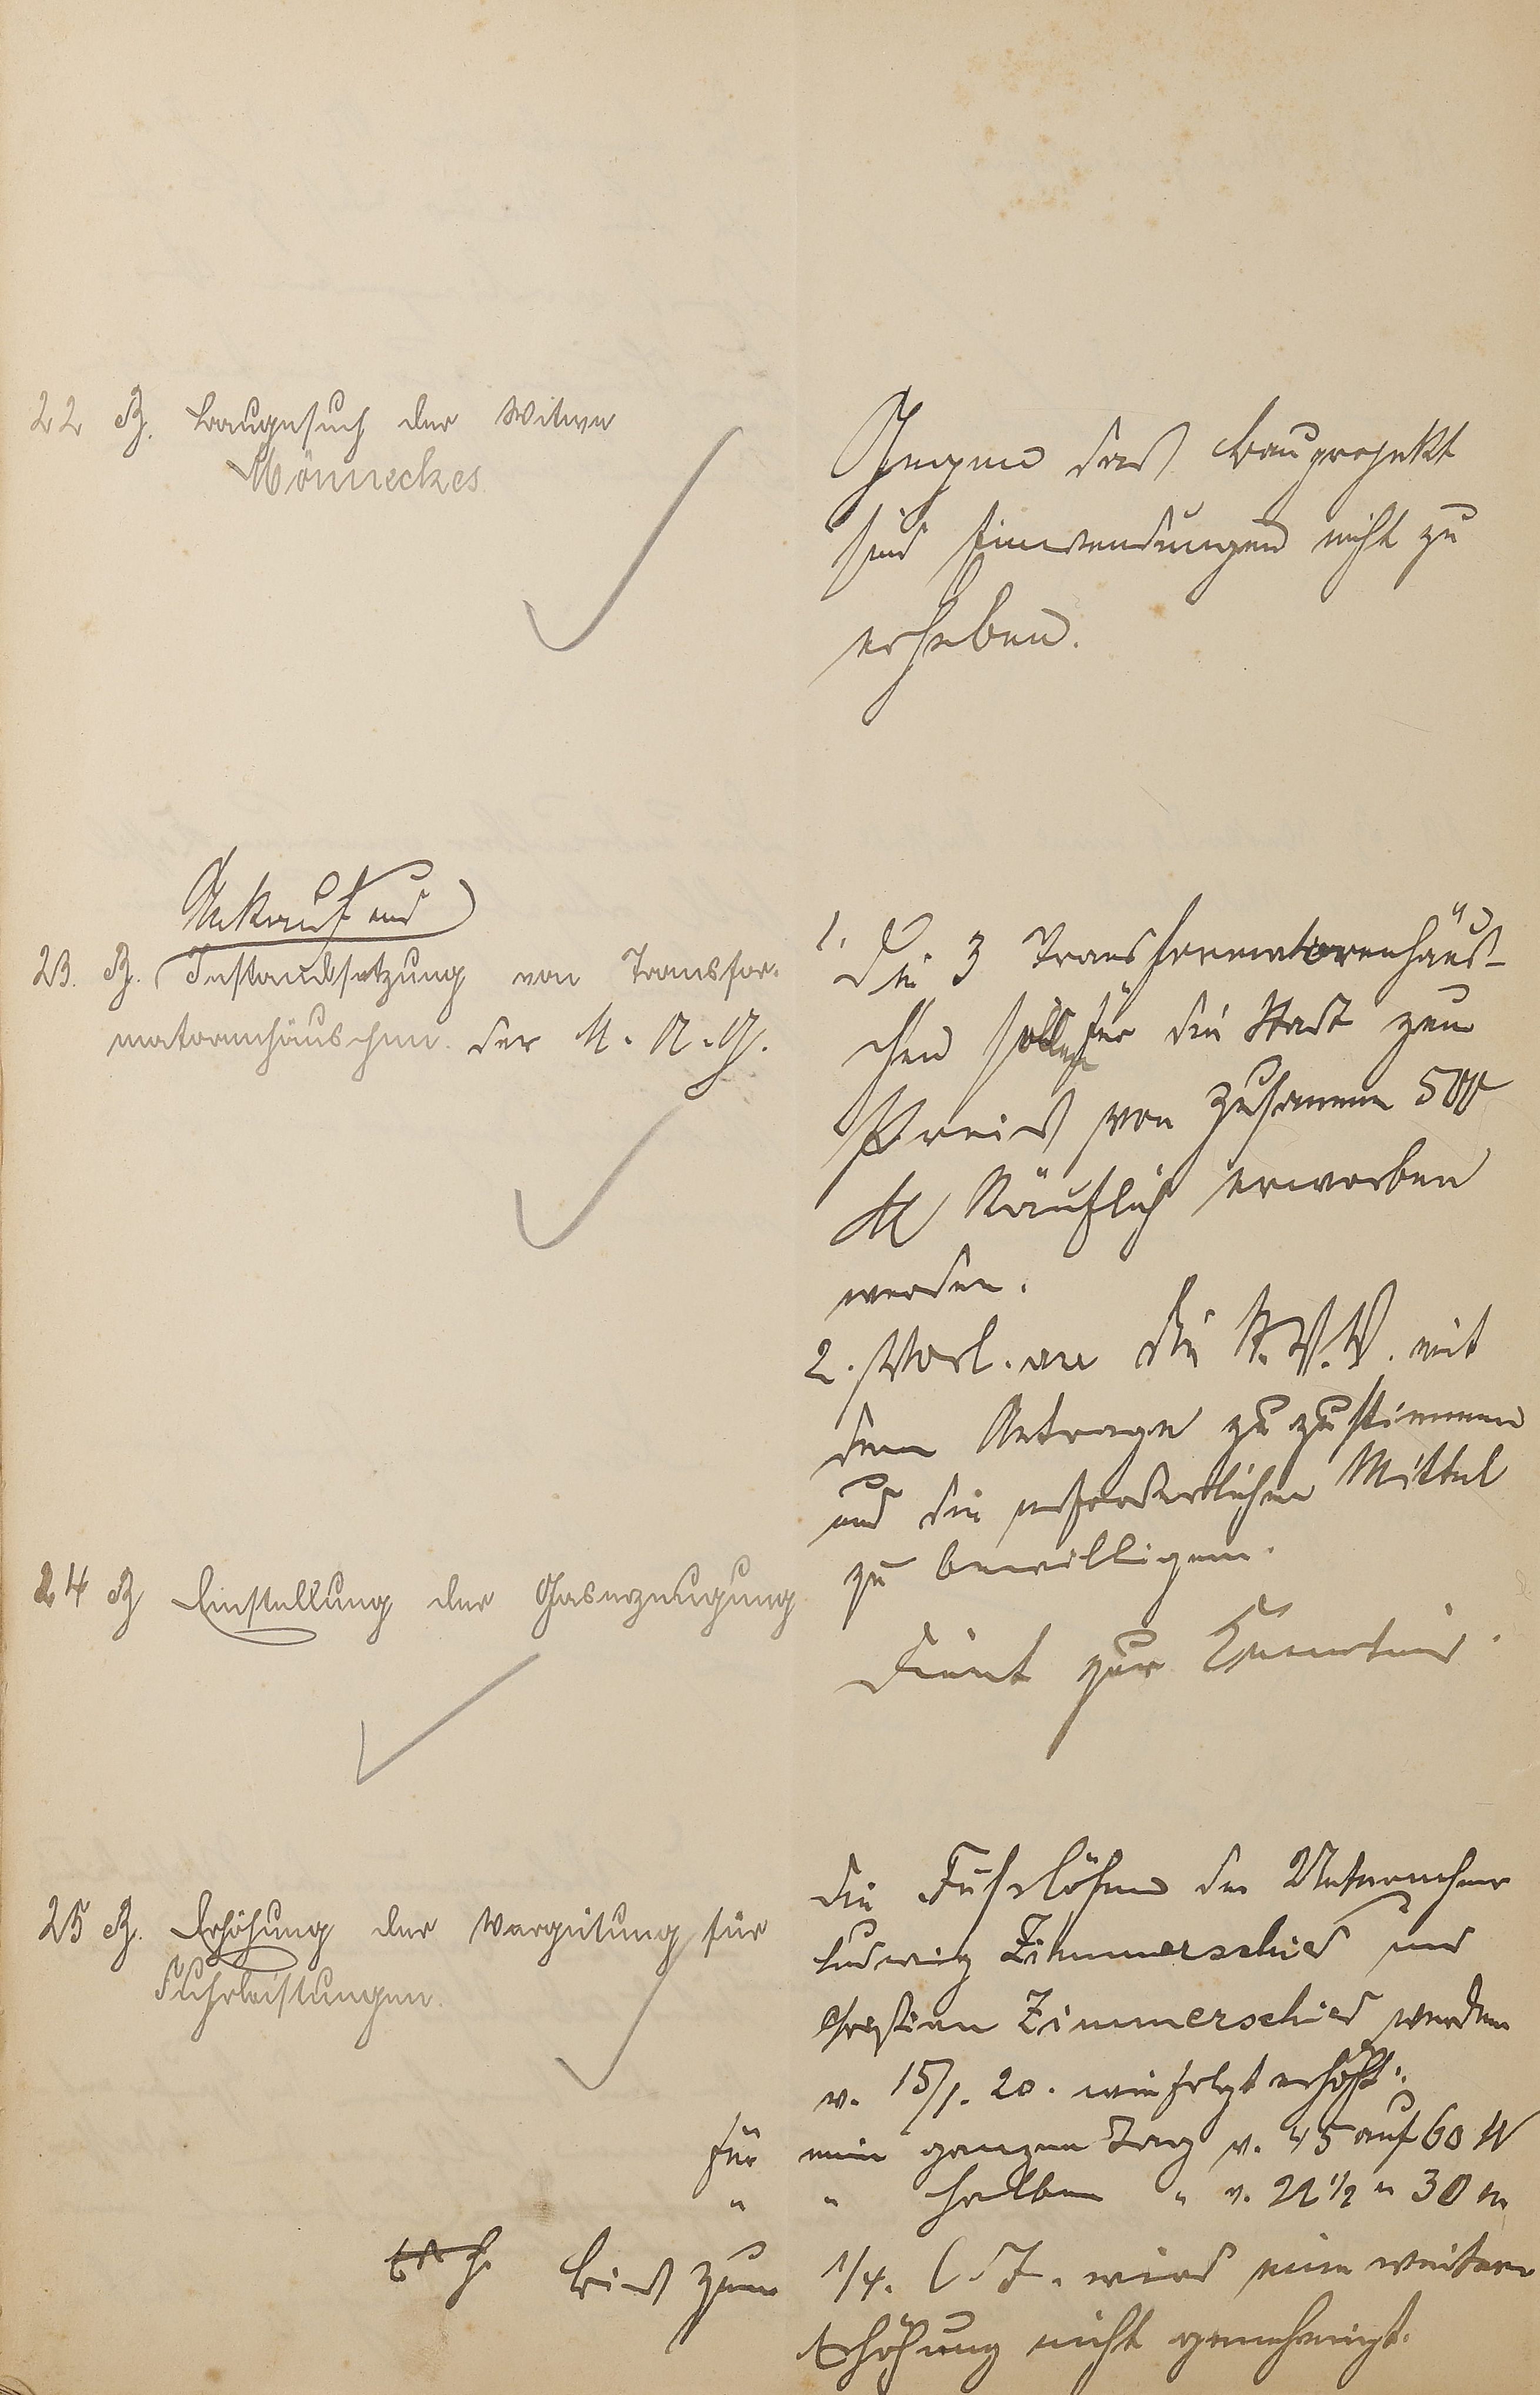 22 B. Baugesuch der Witwe
Mönneckes
Gegen das Bauprojekt
sind Einwendungen nicht zu
erheben.
Ankauf und
23. B. Instandsetzung von Transfor-
matorenhäuschen der M. A. G.
1. Die 3 Transformatorenhäus-
chen sollen für die Stadt zum
Preis von zusammen 500
M käuflich erworben
werden.
2. Vorl. an die St. V. V. mit
dem Antrage zuzustimmen
und die erforderlichen Mittel
zu bewilligen.
24 B Einstellung der Gaserzeugung
Dient zur Kenntnis.
25 B. Erhöhung der Vergütung für
Fuhrleistungen.
Die Fuhrlöhne der Unternehmer
Ludwig Zimmerschied und
Christian Zimmerschied werden
v. 15/1. 20. wie folgt erhöht:
für ein ganzen Tag v. 45 auf 60 M
" " halben " v. 22 1/2 " 30 M
Bis zum 1/4. l. J. wird eine weitere
Erhöhung nicht genehmigt.